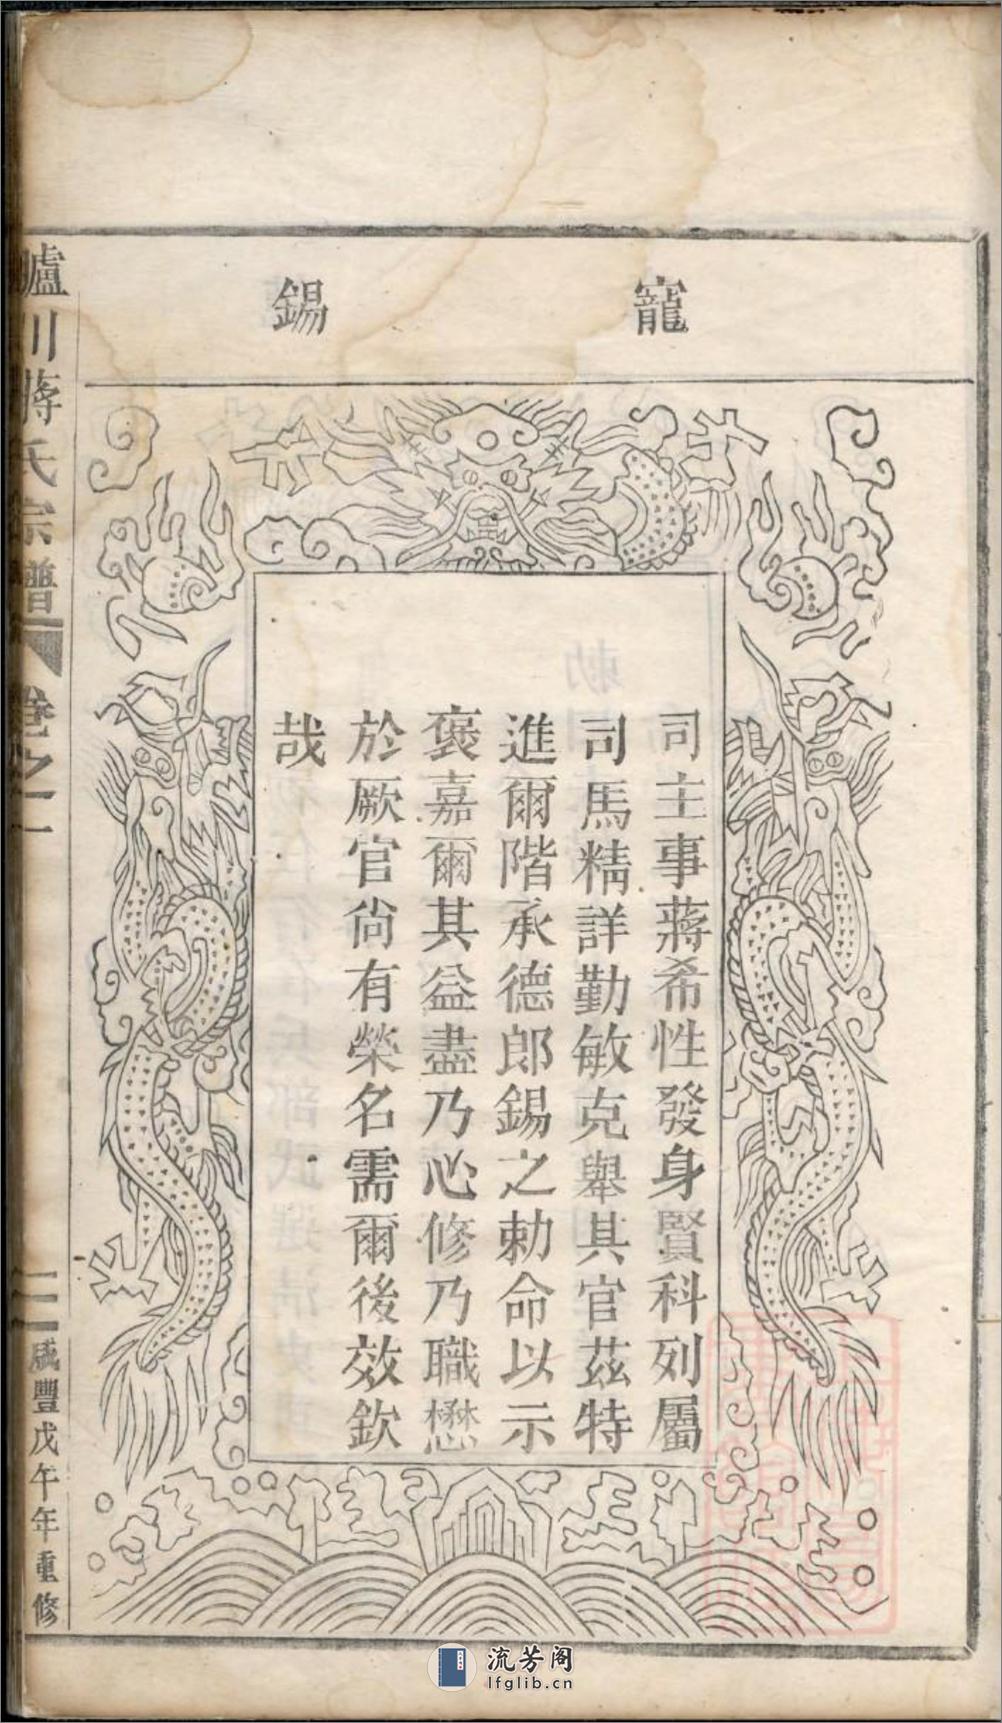 寵錫
司主事蔣希性發身賢科列屬
司馬精詳勤敏克舉其官茲特
進爾階承德郎錫之勅命以示
褒嘉爾其益盡乃心修乃職懋
於厥官尙有榮名需爾後效欽
哉
川蔣氏宗譜
卷之一
二
咸豐戊午年重修
流芳阁
lfglib.cn